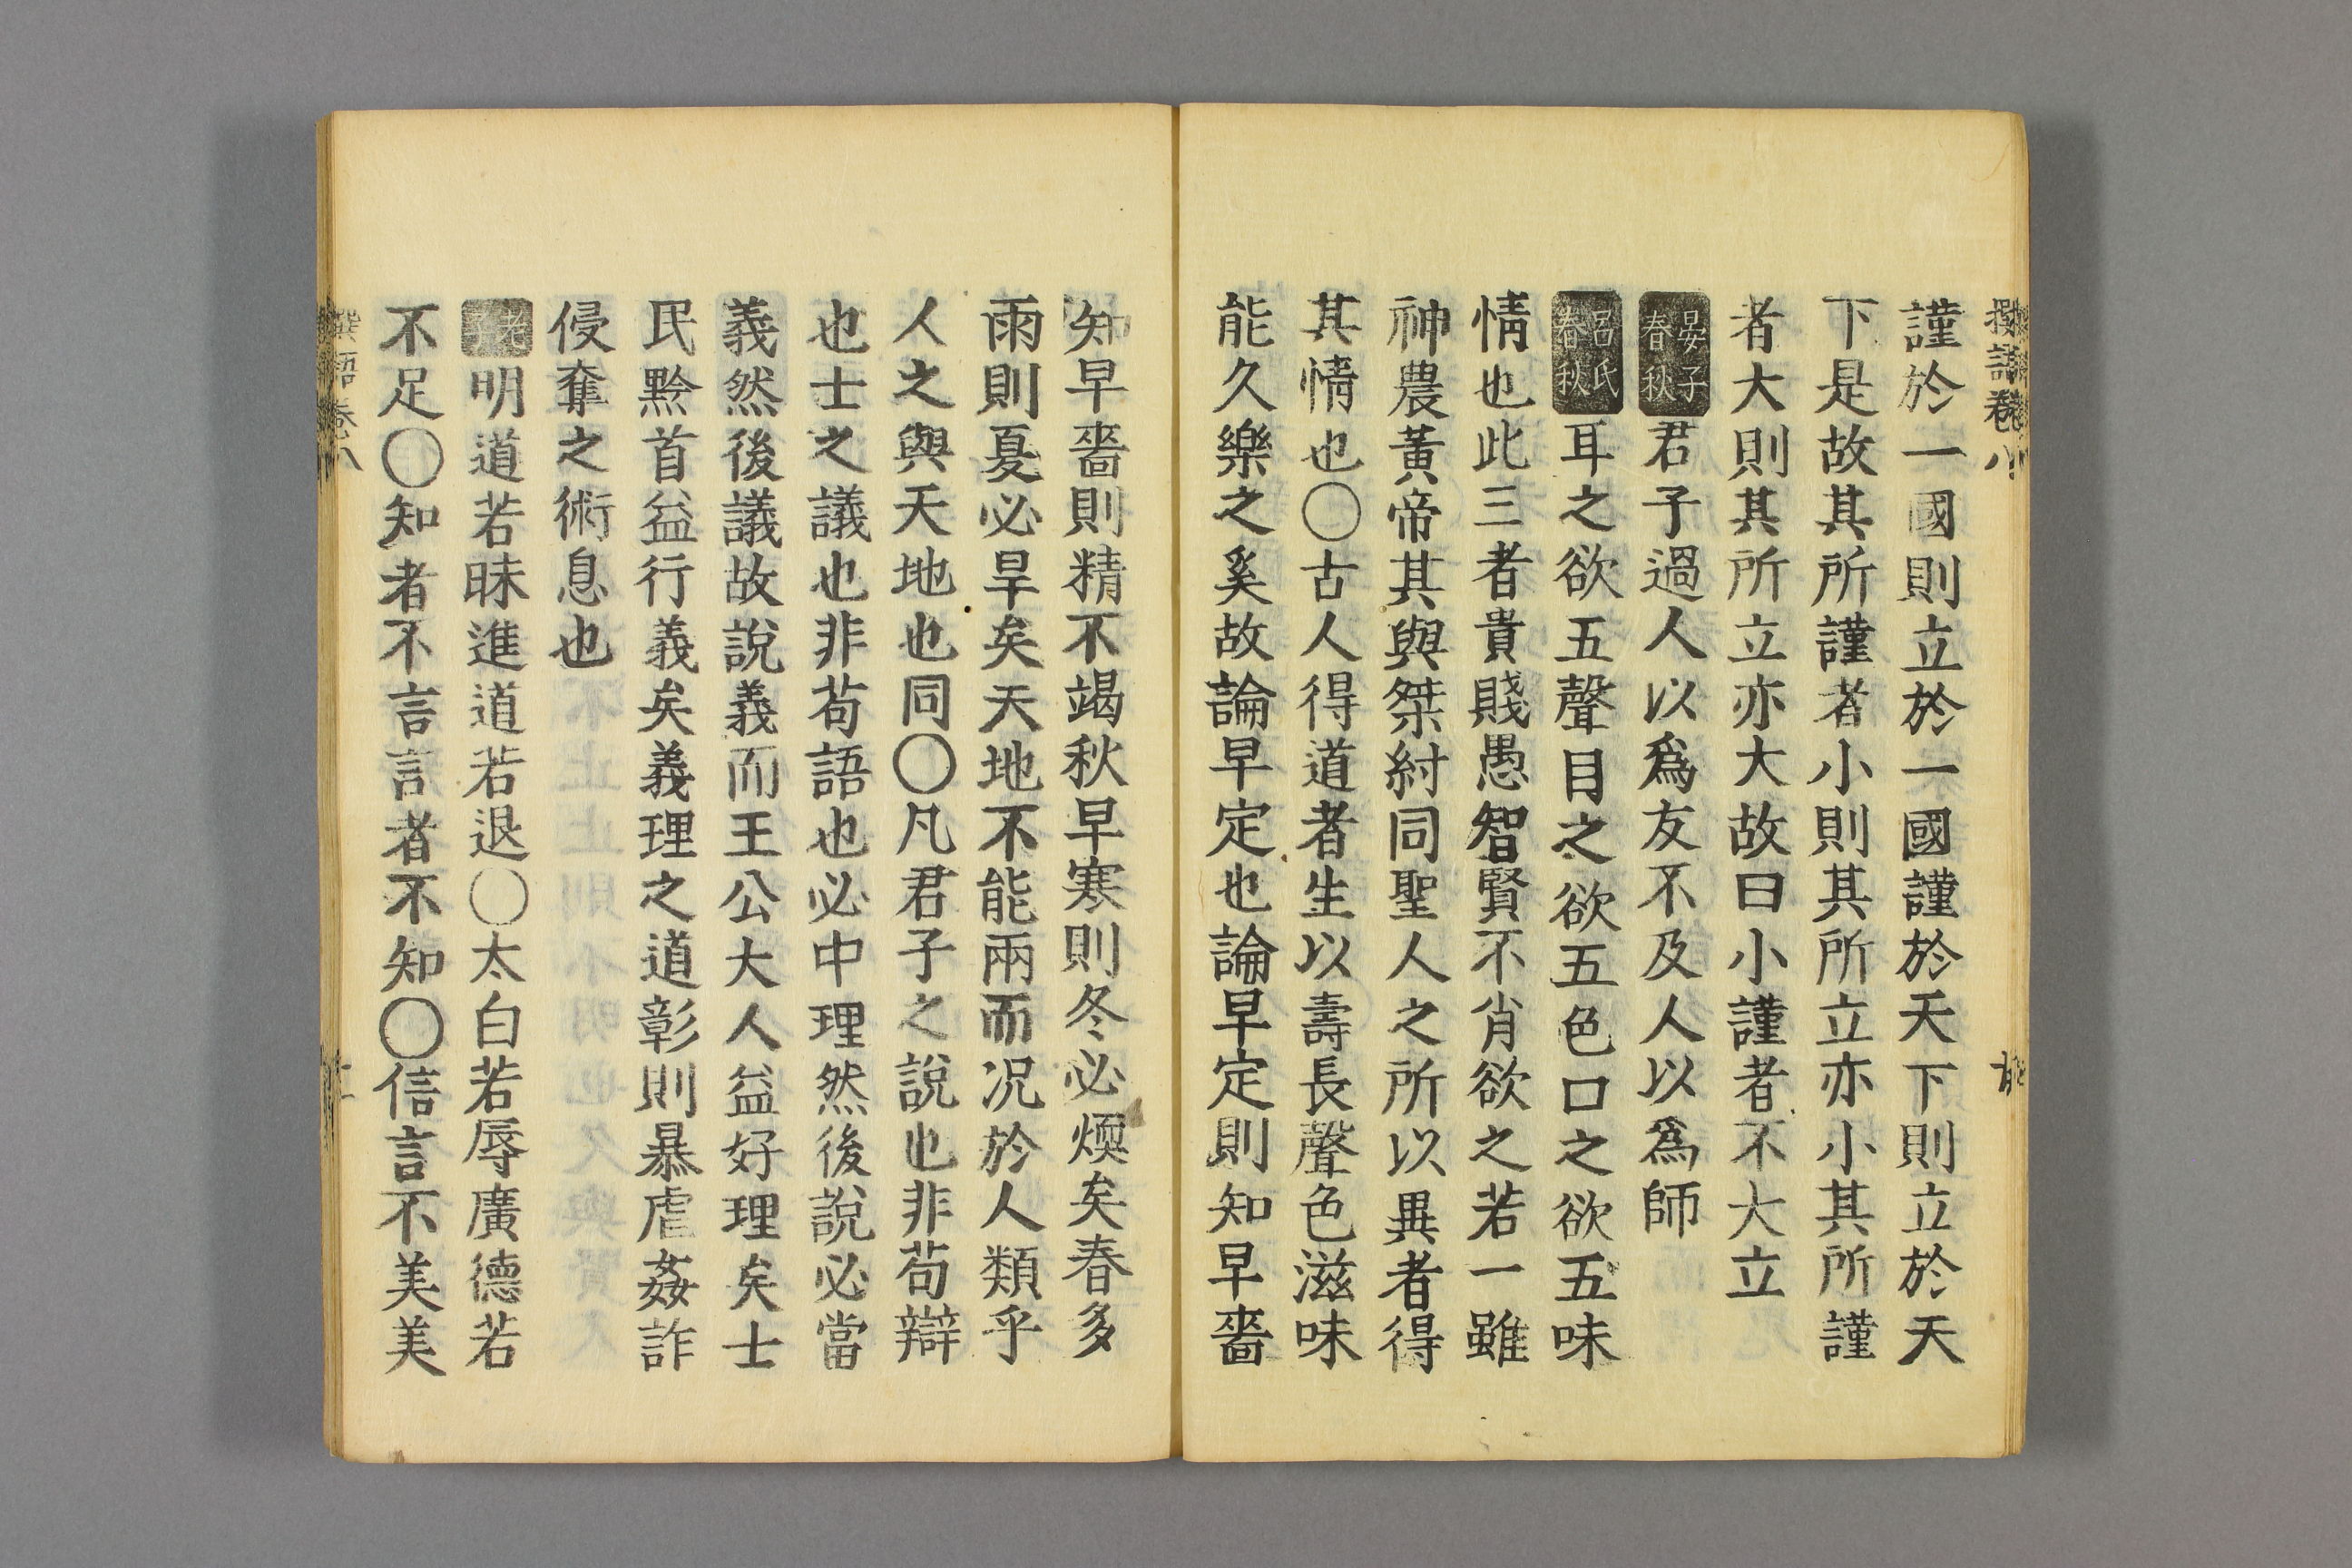 謹於一國則立於一國謹於天下則立於天
下是故其所謹者小則其所立亦小其所謹
者大則其所立亦大故曰小謹者不大立
晏子春秋君子過人以爲友不及人以爲師
呂氏春秋耳之欲五聲目之欲五色口之欲五味
情也此三者貴賤愚智賢不肖欲之若一雖
神農黃帝其與桀紂同聖人之所以異者得
其情也〇古人得道者生以壽長聲色滋味
能久樂之奚故論早定也論早定則知早嗇
知早嗇則精不竭秋早寒則冬必煗矣春多
雨則夏必旱矣天地不能兩而况於人類乎
人之與天地也同〇凡君子之說也非苟辯
也士之議也非苟語也必中理然後說必當
義然後議故說義而王公大人益好理矣士
民黔首益行義矣義理之道彰則暴虐姦詐
侵奪之術息也
老子明道若昧進道若退〇太白若辱廣德若
不足〇知者不言言者不知〇信言不美美